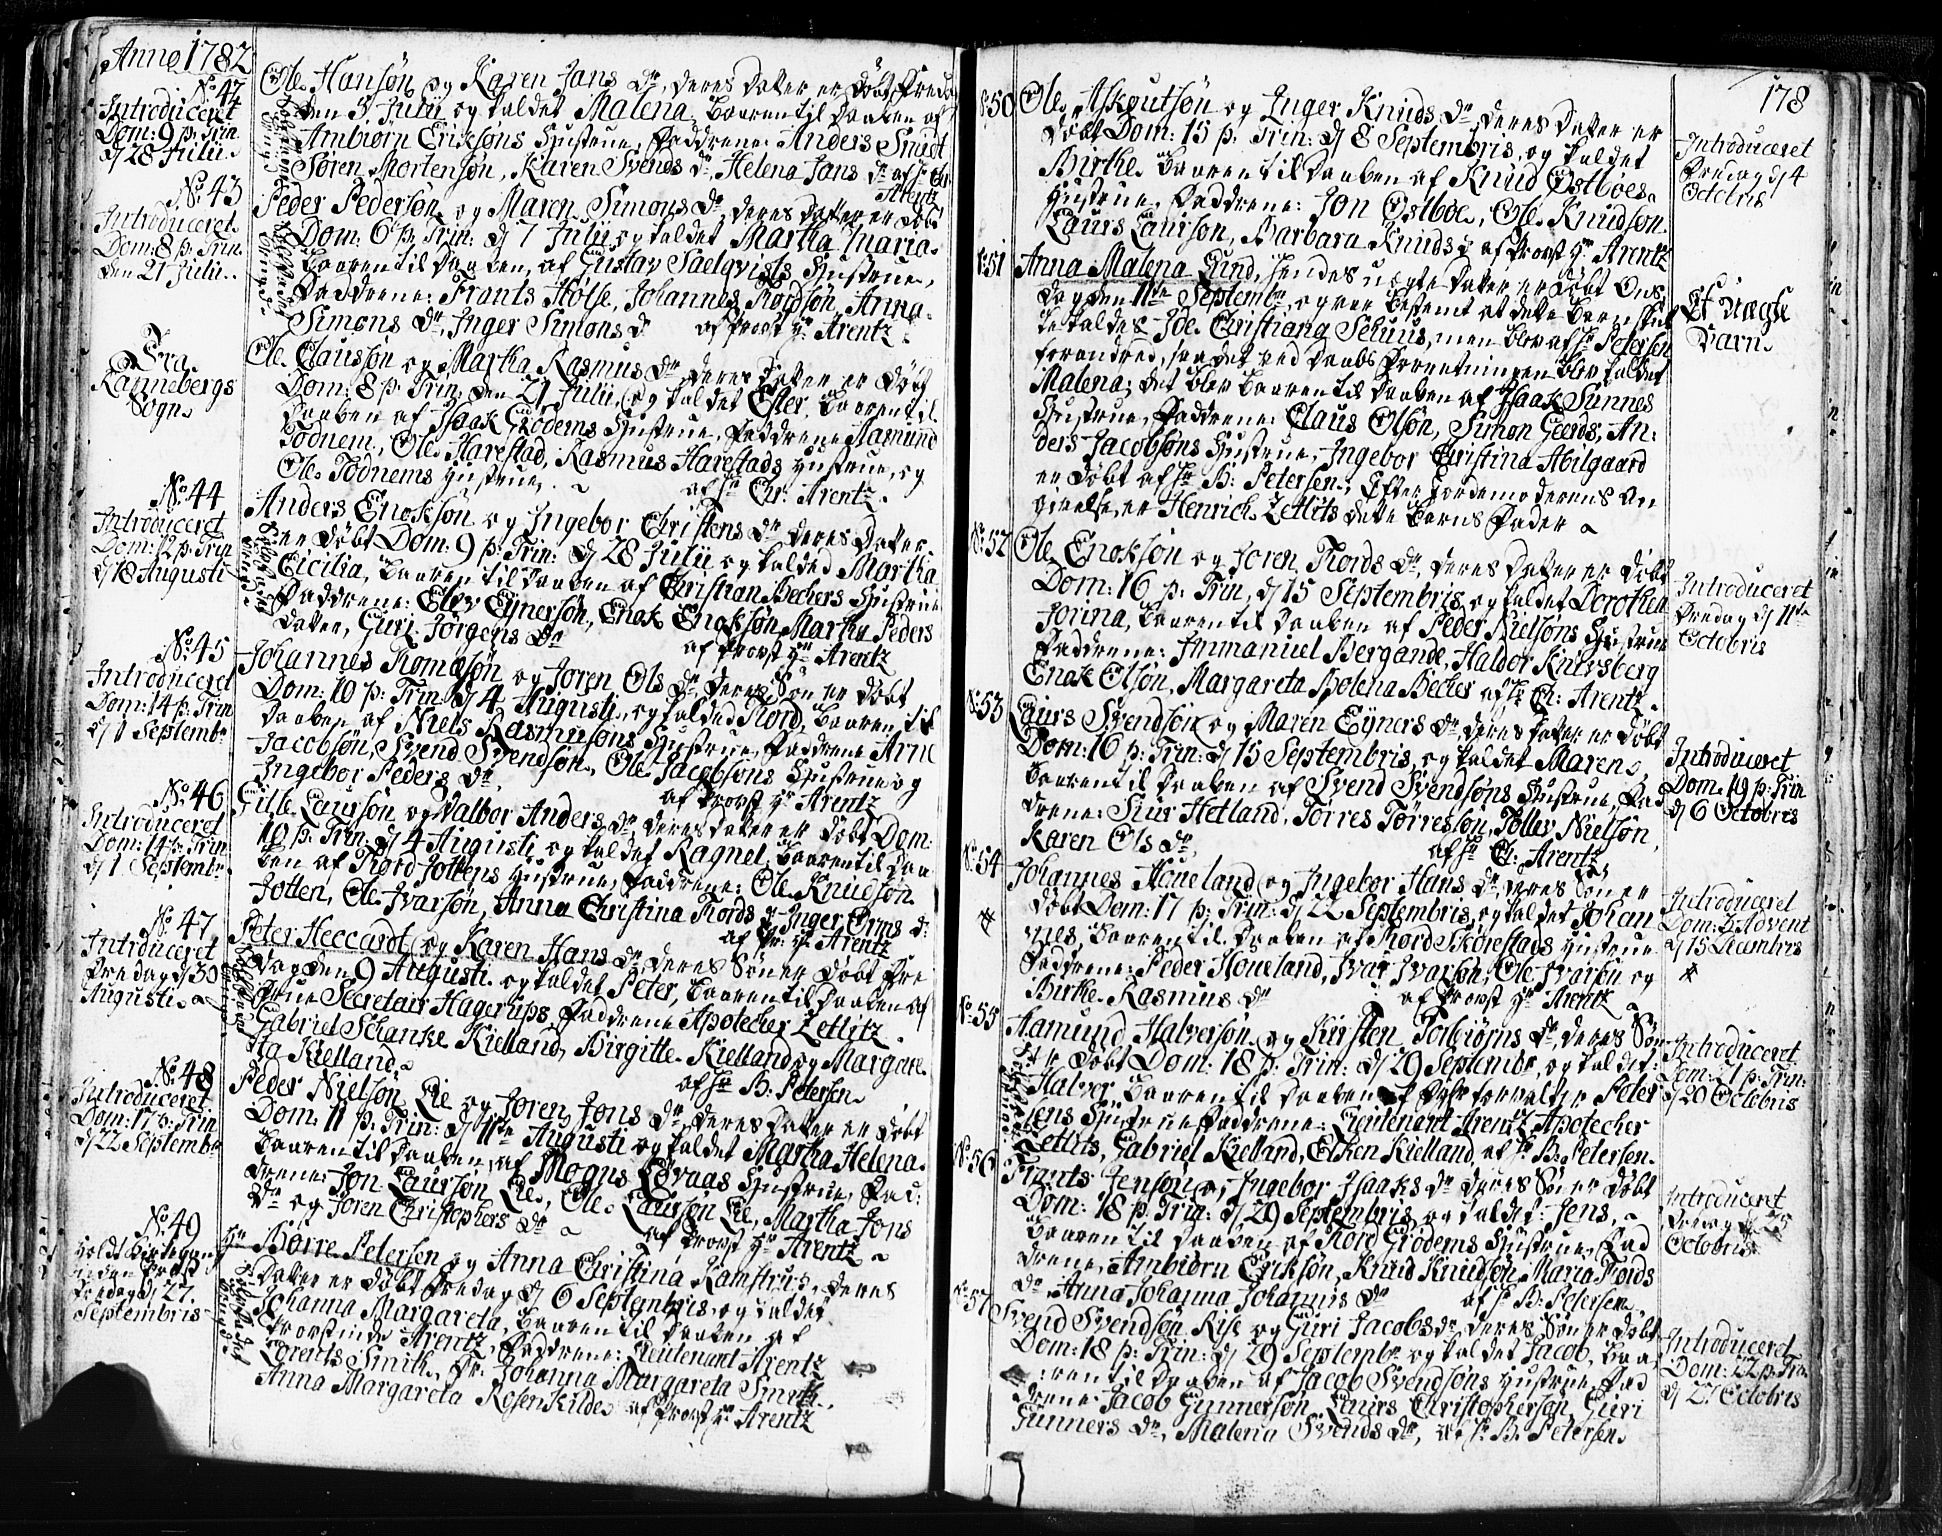 Anno 1782
No 42
Introduceret
Dom: 9 p: Trin
d 28 Julii
Ole Hansøn og Karen Jans Dr, deres Datter er Døbt Fredag
den 5 Julii og kaldet Malena, baaren til Daaben af
Ambiørn Eriksøns Hustrue, Faddrene: Anders Smidt
Søren Mortensøn, Karen Svends Dr, Helena Jans Dr af Hr Chr:
Arentz
No 43
Introduceret
Dom: 8 p: Trin
den 21 Julii
Peder Pedersøn og Maren Simons Dr deres Datter er Døbt
Dom: 6 p: Trin: d 7 Julii og kaldet Martha Maria
baaren til Daaben, af Gustav Saelqvists Hustrue,
Faddrene: Frants Holse, Johannes Tordsøn, Anna
Simons Dr, Inger Simons Dr af Provst Hr Arentz
Fra
Rannebergs
Sogn
Ole Clausøn og Martha Rasmus Dr deres Datter er Døbt
Dom: 8 p: Trin: den 21 Julii, og kaldet Ester, baaren til
Daaben af Isaak Grødems Hustrue, Faddrene Aamund
Todnem, Ole Harestad, Rasmus Harestads Hustrue, og
Ole Todnems Hustrue af Hr Chr: Arentz
No 44
Introduceret
Dom: 12 p: Trin
d 18 Augusti
Anders Enoksøn og Ingebor Christens Dr deres Datter
er Døbt Dom: 9 p: Trin: d 28 Julii og kalded Martha
Cicilia, baaren til Daaben af Christian Bechers Hustrue
Faddrene: Elev Ejnersøn, Enok Enoksøn, Martha Peders
Datter, Guri Jørgens Dr af Provst Hr Arentz
No 45
Introduceret
Dom: 14 p: Trin
d 1 Septembr
Johannes Tomasøn og Joren Ols Dr, deres Søn er Døbt
Dom: 10 p: Trin d 4 Augusti, og kalded Tord, baaren til
Daaben af Niels Rasmusøns Hustrue, Faddrene Arne
Jacobsøn, Svend Svendsøn, Ole Jacobsøns Hustrue og
Ingebor Peders Dr af Provst Hr Arentz
No 46
Introduceret
Dom: 14 p: Trin
d 1 Septembr
Gille Laursøn og Valbor Anders Dr deres Datter er Døbt Dom:
10 p: Trin: d 4 Augusti og kaldet Ragnel, baaren til Daa
ben af Tord Jottens Hustrue, Faddrene: Ole Knudsøn
Jotten, Ole Ivarsøn, Anna Christina Tords Dr Inger Orms Dr
af Pr: Hr Arentz
No 47
Introduceret
Fredag d 30
Augusti
Peter Heccardt og Karen Hans Dr deres Søn er Døbt Fre
dag den 9 Augusti og kaldet Peter, baaren til Daaben af
Frue Secretair Hagerups, Faddrene Apotecher Zetlitz
Gabriel Schanke Kielland, Birgitte Kielland og Margare
ta Kielland af Hr B: Petersen
No 48
Introduceret
Dom: 17 p: Trin
d 22 Septembr
Peder Nielsøn Lie og Joren Jons Dr, deres Datter er Døbt
Dom: 11 p: Trin: d 11te Augusti og kaldet Martha Helena
baaren til Daaben af Mogns Løvaas Hustrue, Fad:
drene: Jon Laursøn Lie, Ole Laursøn Lie, Martha Jons
Dr og Joren Christophers Dr af Provst Hr Arentz
No 49
holdt Kirkegang
Fredag d 27
Septembris
Hr Børre Petersen og Anna Christina Kamstrup, deres
Datter er Døbt Fredag d 6 Septembris og kaldet
Johanna Margareta, baaren til Daaben af
Provstinde Arentz, Faddrene: Lieutenant Arentz
Lorents Smith, Fr: Johanna Margareta Smith
Anna Margareta Rosenkilde af Provst Hr Arentz
178
No 50
Ole Askoutsøn og Inger Knuds Dr deres Datter er
Døbt Dom: 15 p: Trin: d 8 Septembris, og kaldet
Birthe, baaren til Daaben af Knud Østbøes
Hustrue, Faddrene: Jon Østbøe, Ole Knudsøn
Laurs Laursøn, Barbara Knuds Dr af Provst Hr Arentz
Introduceret
Fredag d 4
Octobris
No 51
Anna Malena Lund, hendes uægte Datter er Døbt Ons
dag den 11te Septembr, og var bestemt at dette Barn skul
le kaldes Ide Christiana Schius, men blev af Hr Petersen
forandred, saa det ved Daabs Forretningen blev kaldet
Malena; det blev baaren til Daaben af Isaak Sunnes
Hustrue, Faddrene: Claus Olsøn, Simon Geerds, An:
ders Jacobsøns Hustrue, Ingebor Christina Abilgaard
er Døbt af Hr B: Petersen; Efter Jordemoderens An
givelse er Henrich Zetlits dette Barns Fader
Et uægte
Barn
No 52
Ole Enoksøn og Joren Tords Dr, deres Datter er Døbt
Dom: 16 p: Trin, d 15 Septembris og kaldet Dorothea
Jorina, baaren til Daaben af Peder Nielsøns Hustrue
Faddrene: Immanuel Bergande, Haldor Knivsberg
Enok Olsøn, Margareta Bolena Becher af Hr Ch: Arentz
Introduceret
Fredag d 11te
Octobris
No 53
Laurs Svendsøn og Maren Ejners Dr, deres Datter er Døbt
Dom: 16 p: Trin: d 15 Septembris, og kaldet Maren,
baaren til Daaben af Svend Svendsøns Hustrue, Fad
drene: Siur Hetland, Tørres Tørresøn, Tollev Nielsøn,
Karen Ols Dr af Hr Ch: Arentz
Introduceret
Dom: 19 p: Trin
d 6 Octobris
No 54
Johannes Houeland og Ingebor Hans Dr, deres Søn er
Døbt Dom: 17 p: Trin: d 22 Septembris, og kaldet Johan
nes, baaren til Daaben af Tord Skørestads Hustrue
Faddrene: Peder Houeland, Ivar Ivarsøn, Ole Ivarsøn og
Birthe Rasmus Dr af Provst Hr Arentz
Introduceret
Dom: 3 Advent
d 15 Decembris
No 55
Aamund Halversøn og Kirsten Torbiørns Dr, deres Søn
er Døbt Dom: 18 p: Trin: d 29 Septembr, og kaldet:
Halvor, baaren til Daaben af Peter
Jens Hustrue Faddrene: Lieutenant Arentz Apotecher
Zetlits, Gabriel Kielland, Elken Kielland af Hr B: Petersen
Introduceret
Dom: 21 p: Trin:
d 20 Octobris
No 56
Frants Jensøn og Ingebor Isaaks Dr deres Søn er Døbt
Dom: 18 p: Trin: d 29 Septembris og kaldet Jens,
baaren til Daaben af Tord Grødems Hustrue, Fad
drene, Ambiørn Eriksøn, Knud Knudsøn, Maria Tords
Dr Anna Johanna Johannis Dr af Hr B: Petersen
Introduceret
Fredag d 25
Octobris
No 57
Svend Svendsøn Rise og Guri Jacobs Dr, deres Søn er Døbt
Dom: 18 p: Trin: d 29 Septembr og kaldet Jacob, baa
ren til Daaben af Jacob Svendsøns Hustrue, Fad
drene: Jacob Gunnersøn, Laurs Christophersøn, Guri
Gunners Dr, Malena Svends Dr, af Hr B. Petersen
Introduceret
Dom: 22 p: Trin
d 27 Octobris